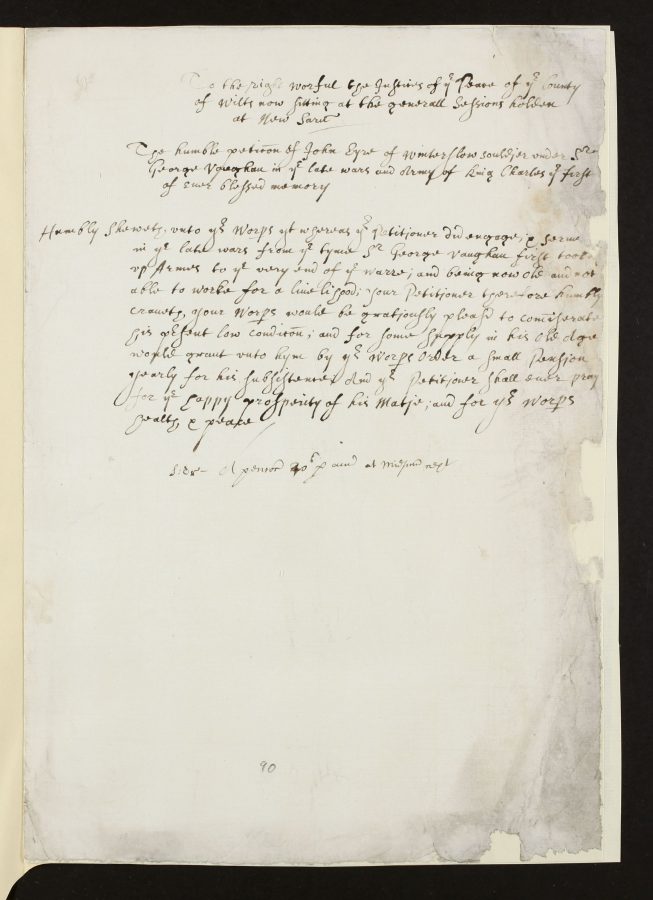 To the right worful the Justices of ye Peace of ye County
of Wilts now sitting at the generall Sessions holden
at New Sarū
The humble peticōn of John Eyre of Winterslow souldjer under Sr
George Vaughan in ye late wars and Army of King Charles ye first
of ever blessed memory
Humbly Sheweth, unto yr Worps yt whereas yr Petitjoner did engage, & serve
in ye late wars from ye tyme Sr George Vaughan first took
up Armes to ye very end of ye warre; and being now old and not
able to worke for a livelihood; your Petitjoner therefore humbly
craveth, your Worps would be gratjously pleasd to comiserate
his present low condicōn; and for some supply in his old Age
would grant unto hym by yr Worps Order a small Pension
yearly for his subsistence And yr Petitjoner shall ever pray
for ye happy prosperity of his Matje; and for yr Worps
health, & peace
A pencōn 40s p ann at Midsmr next
90